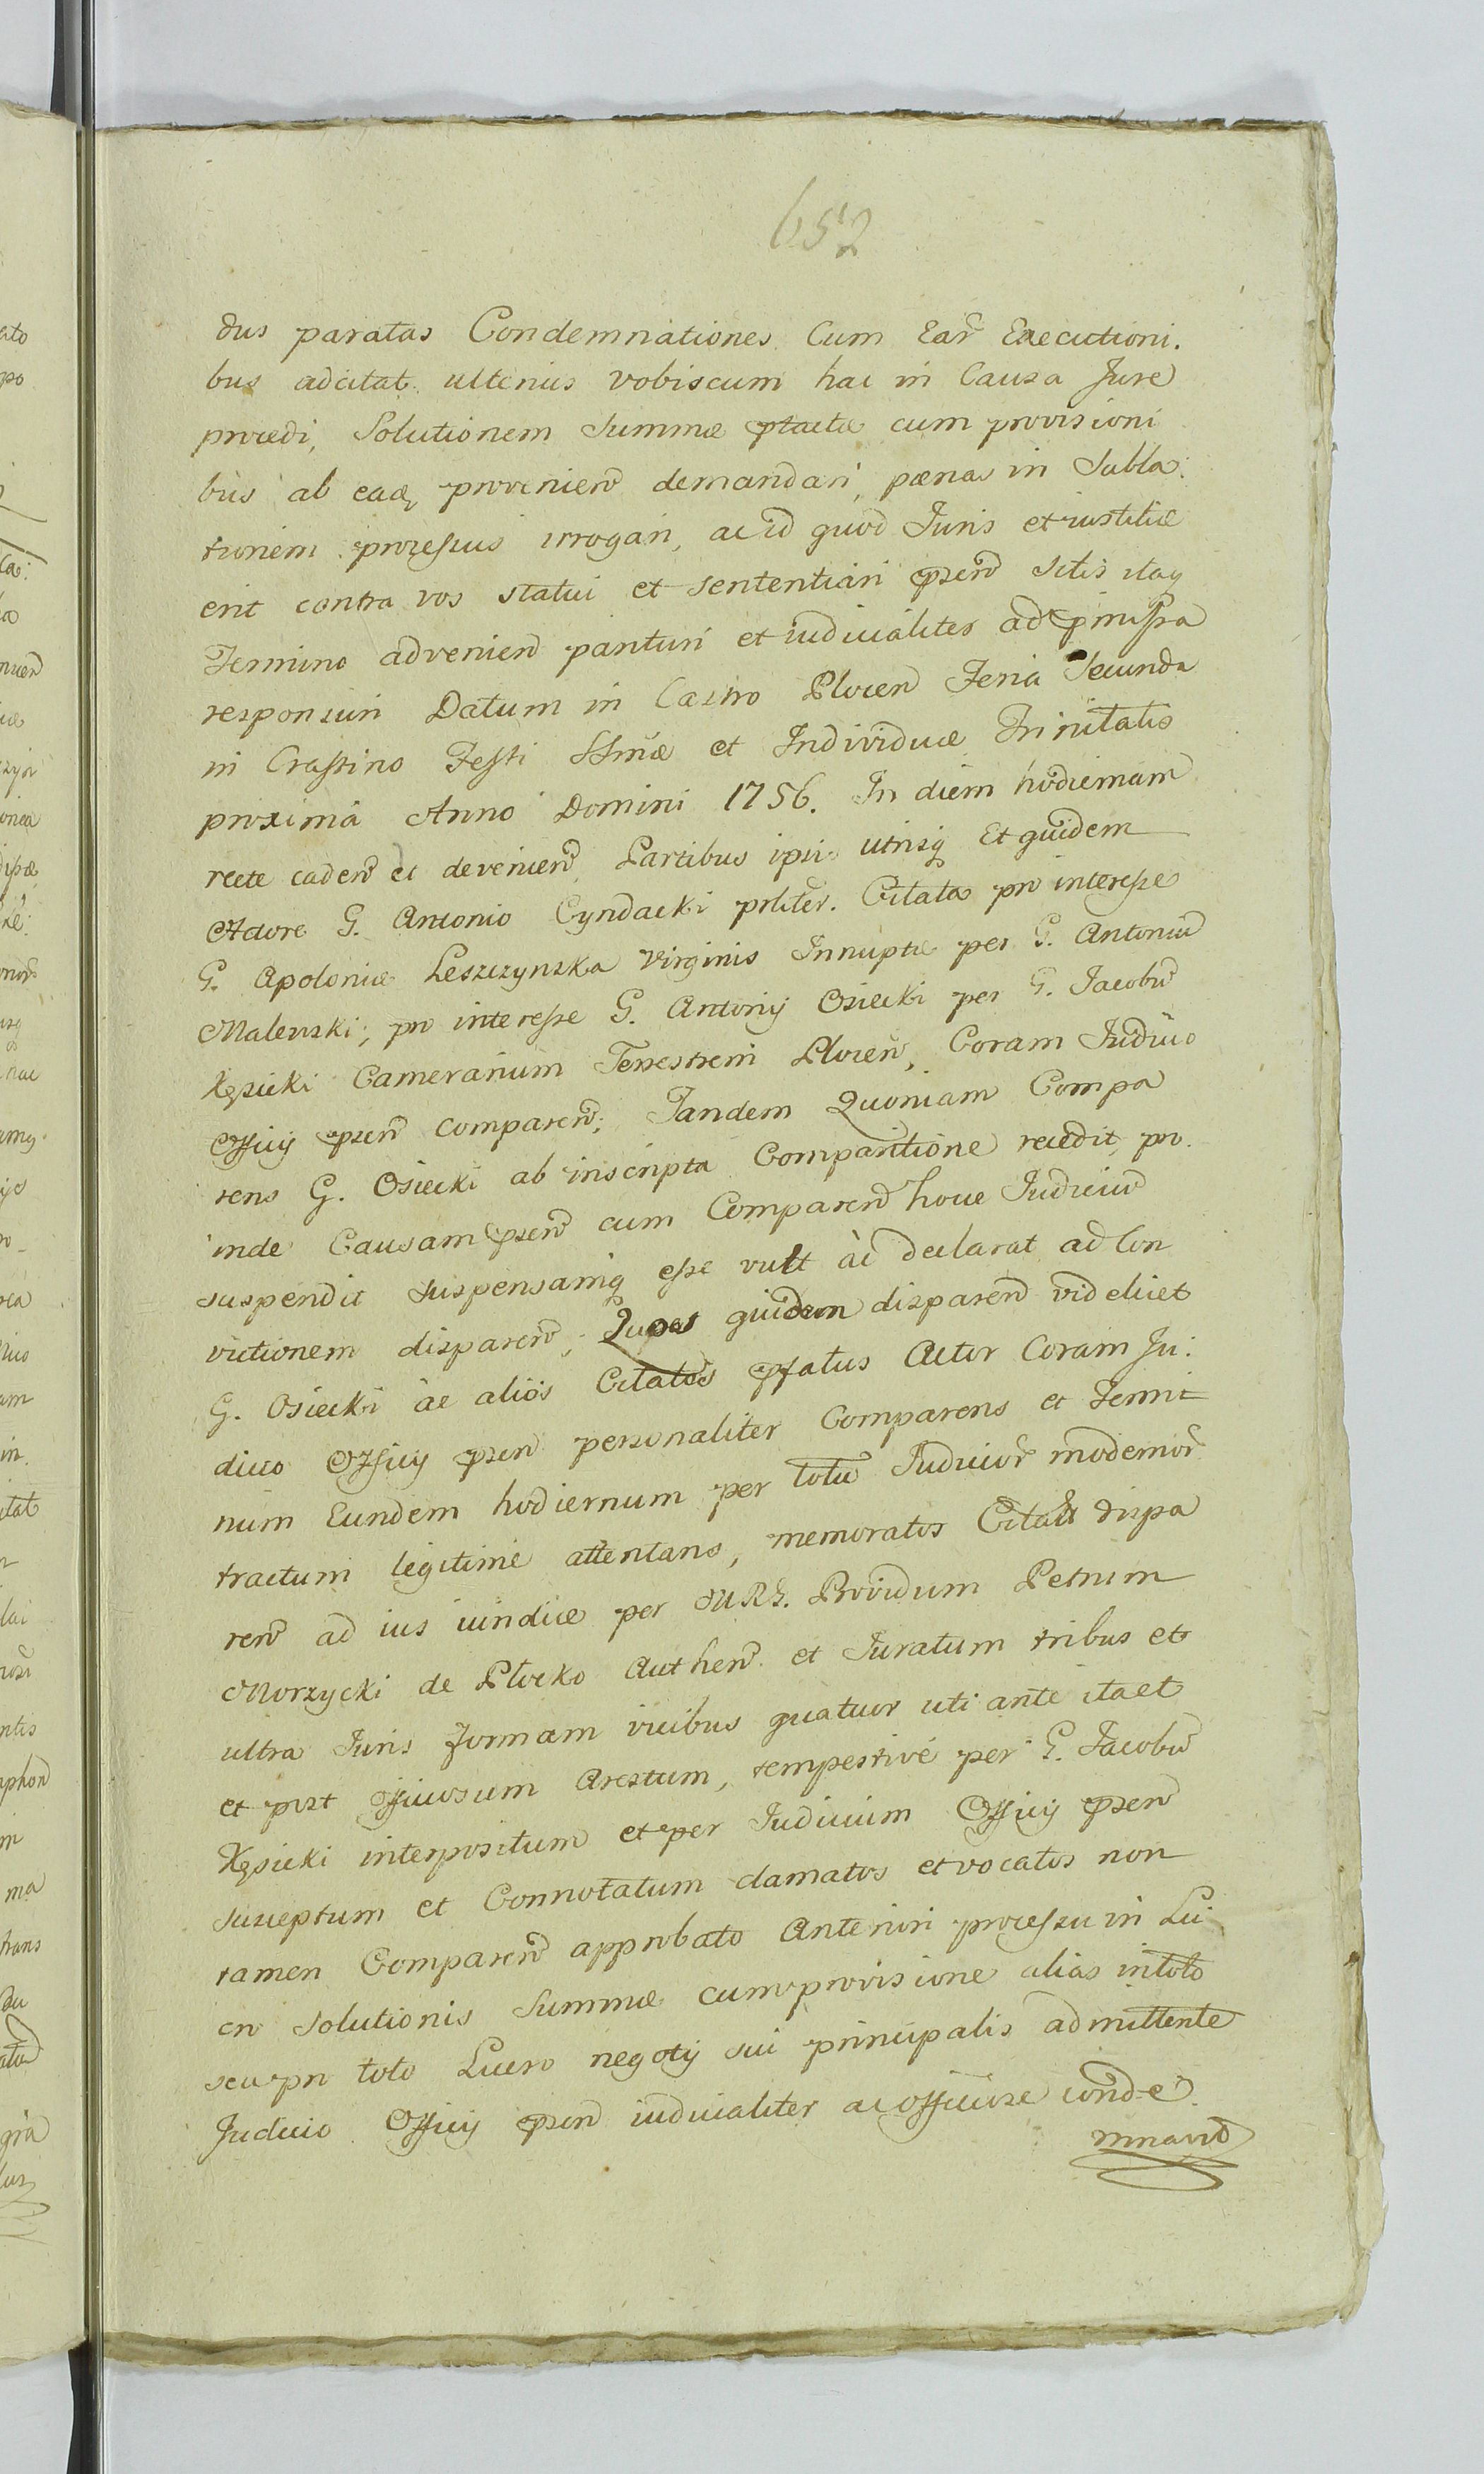 652
dus paratas Condemnationes Cum Ear̃ Executioni.
bus adcitat. ulterius vobiscum hac in Causa Jure
procedi, Solutionem Summæ ptactæ cum provisioni
bus ab eadq̢ provenien̄ demandari, pœnas in Subla:
tionem processus irrogari, ac id quod Juris et iustitiæ
erit contra vos statui et sententiari p̄sen̄ sitis itaq̢
Termino advenien̄ parituri et iudicialiter ad p̄missa
responsuri Datum in Castro Plocen̄ Feria Secunda
in Crastino Festi SSmæ et Individuæ Trinitatis
proxima Anno Domini 1756. In diem hodiernam
recte caden̄ et devenien̄ Partibus ipsis utrisq̢ Et quidem
Actore G. Antonio Cyndacki prliter. Citatæ pro interesse
G. Apoloniæ Leszczynska Virginis Innuptæ per G. Antoniū
Malewski; pro interesse G. Antonij Osiecki per G. Jacobū
Kęsicki Camerarium Terrestrem Plocen̄, Coram Judicio
Officij p̄sen̄ comparen̄; Tandem Quoniam Compa
rens G. Osiecki ab inscripta Comparitione recedit, pro.
inde Causam p̄sen̄ cum Comparen̄ hocce Judiciū
suspendit suspensamq̢ esse vult ac declarat ad Con
victionem disparen̄; Quos quidem disparen̄ videlicet
G. Osiecki ac alios Citatos p̄fatus Actor Coram Ju:
dicio Officij p̄sen̄ personaliter Comparens et Termi
num Eundem hodiernum per totū Judicior̃ modernor̃
tractum legitime attentans, memoratos Citatos dispa
ren̄ ad ius iuridice per MRG. Providum Petrum
Morzycki de Płocko Authen̄. et Juratum tribus et
ultra Juris formam vicibus quatuor uti ante ita et
et post officiosum Arestum, tempestive per G. Jacobū
Kęsicki interpositum et per Judicium Officij p̄sen̄
susceptum et Connotatum clamatos et vocatos non
tamen Comparen̄ approbato Anteriori processu in Lu
cro solutionis Summæ cum provisione alias in toto
seu pro toto Lucro negotij sui principalis admittente
Judicio Officij p̄sen̄ iudicialiter ac officiose conde
mnavit